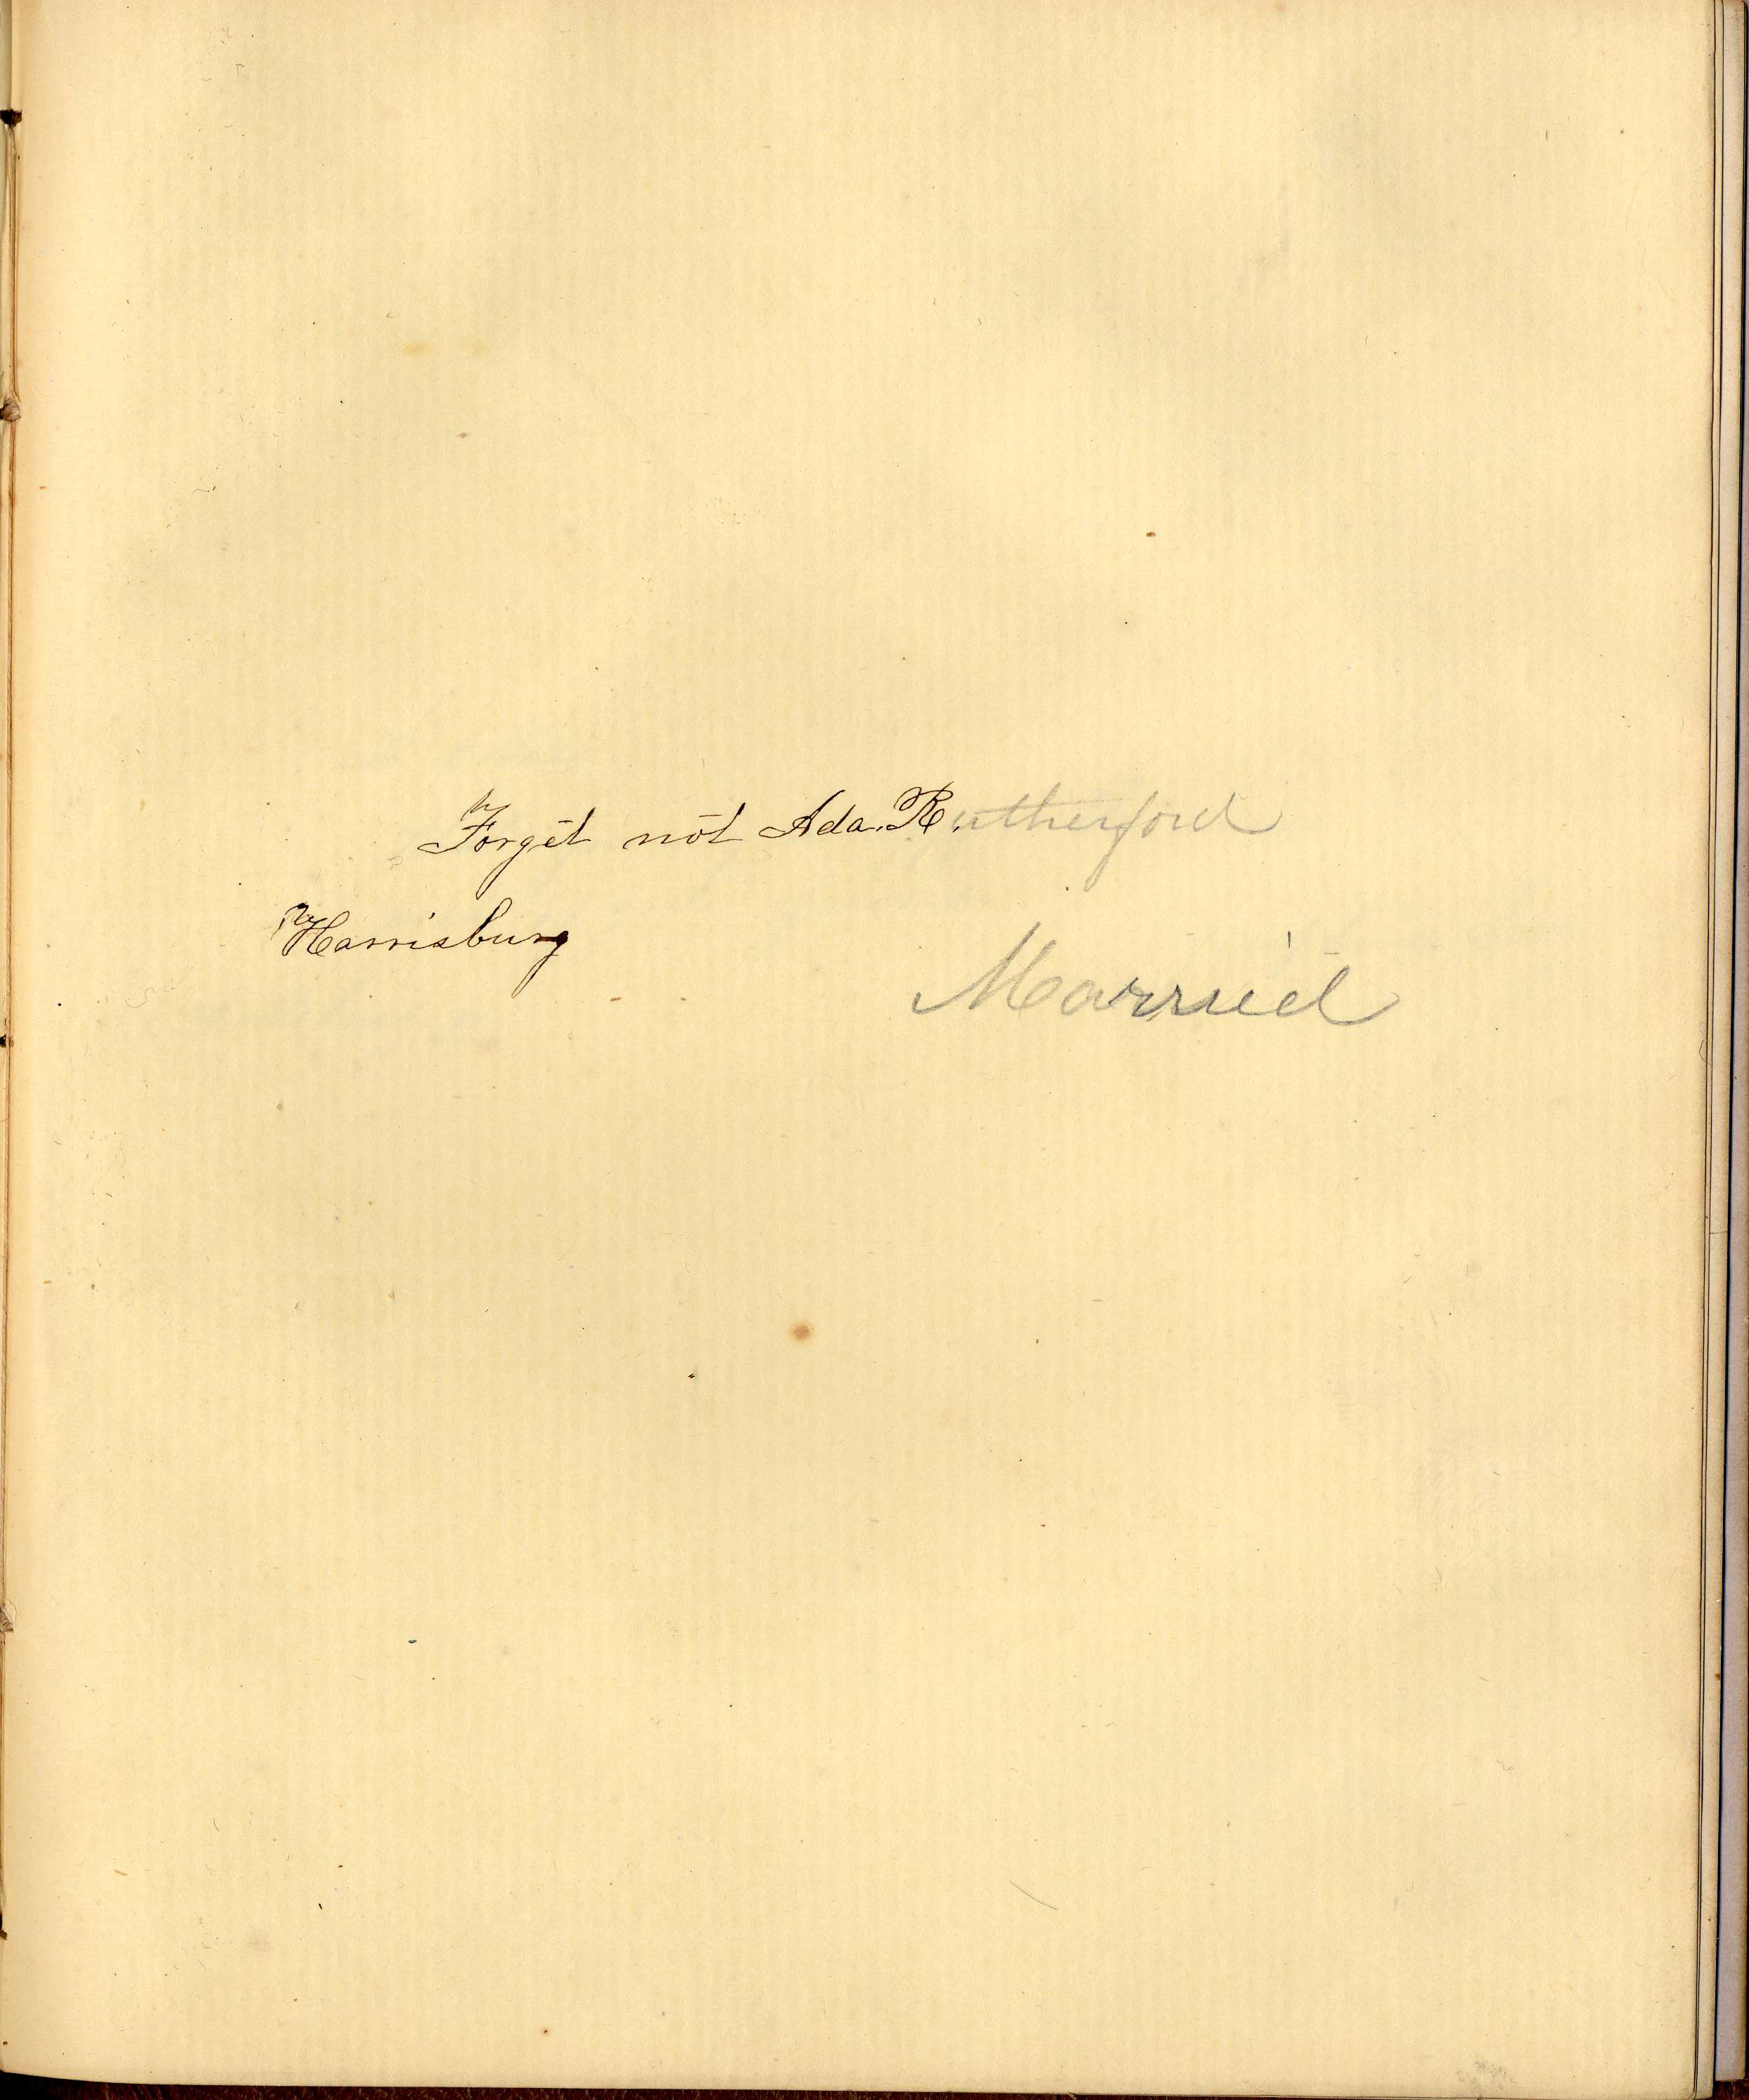 Forget not Ada. R.utherford
Harrisburg
Married